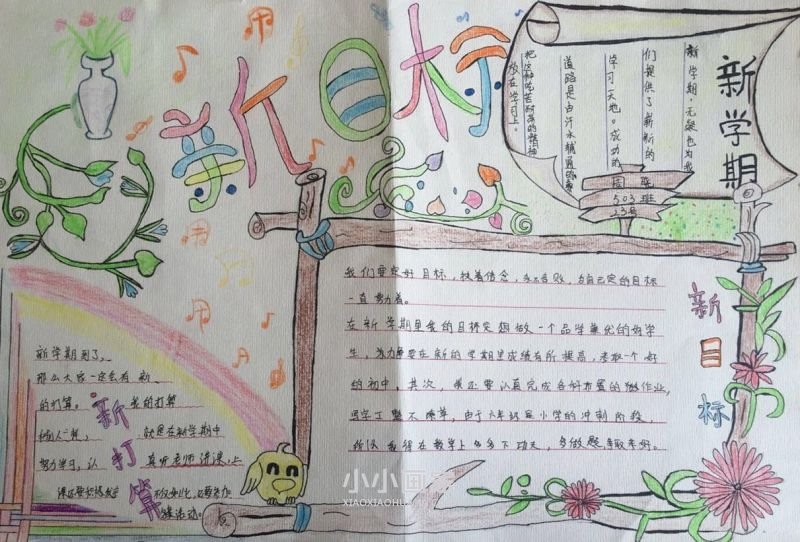 新目标
新学期
新学期,无疑也为我
们提供了崭新的
学习天地。成功的
道路是由汗水铺通的
把这种吃苦耐劳的精神
放在学习上。
503班
23号
我们要定好目标,扶着信念,永不言败,为自己定的目标
一直努力着。
在新学期里我的目标是想做一个品学兼优的好学
生,努力在新的学期里成绩有所提高,考取一个好
的初中,其次,我还要认真完成老师布置的作业,
写字工整不潦草,由于六年级是小学的冲刺阶段,
所以我得在数学上多多下功夫,多做题,争取考好。
新目标
新学期到了,
那么大家一定会有新
的打算。我的打算
就是在新学期中
努力学习,认真听老师讲课,上
课还要积极
新打算
小小画家